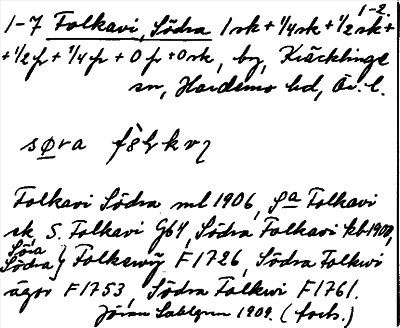 1-2.
1-7 Folkavi, Södra 1 sk + 1/4 sk + 1/2 sk +
+ 1/2 p + 1/4 p + 0 p + 0 sk, by, Kräcklinge
sn, Hardemo hd, Ör. l.
Folkavi Södra ml 1906, Sa Folkavi
sk S. Folkavi G64, Södra Folkavi kb 1900,
Söra
Södra } Folkewij F 1726, Södra Folkwi
ägor F 1753, Södra Folkwi F 1761.
Jöran Sahlgren 1909. (forts.)